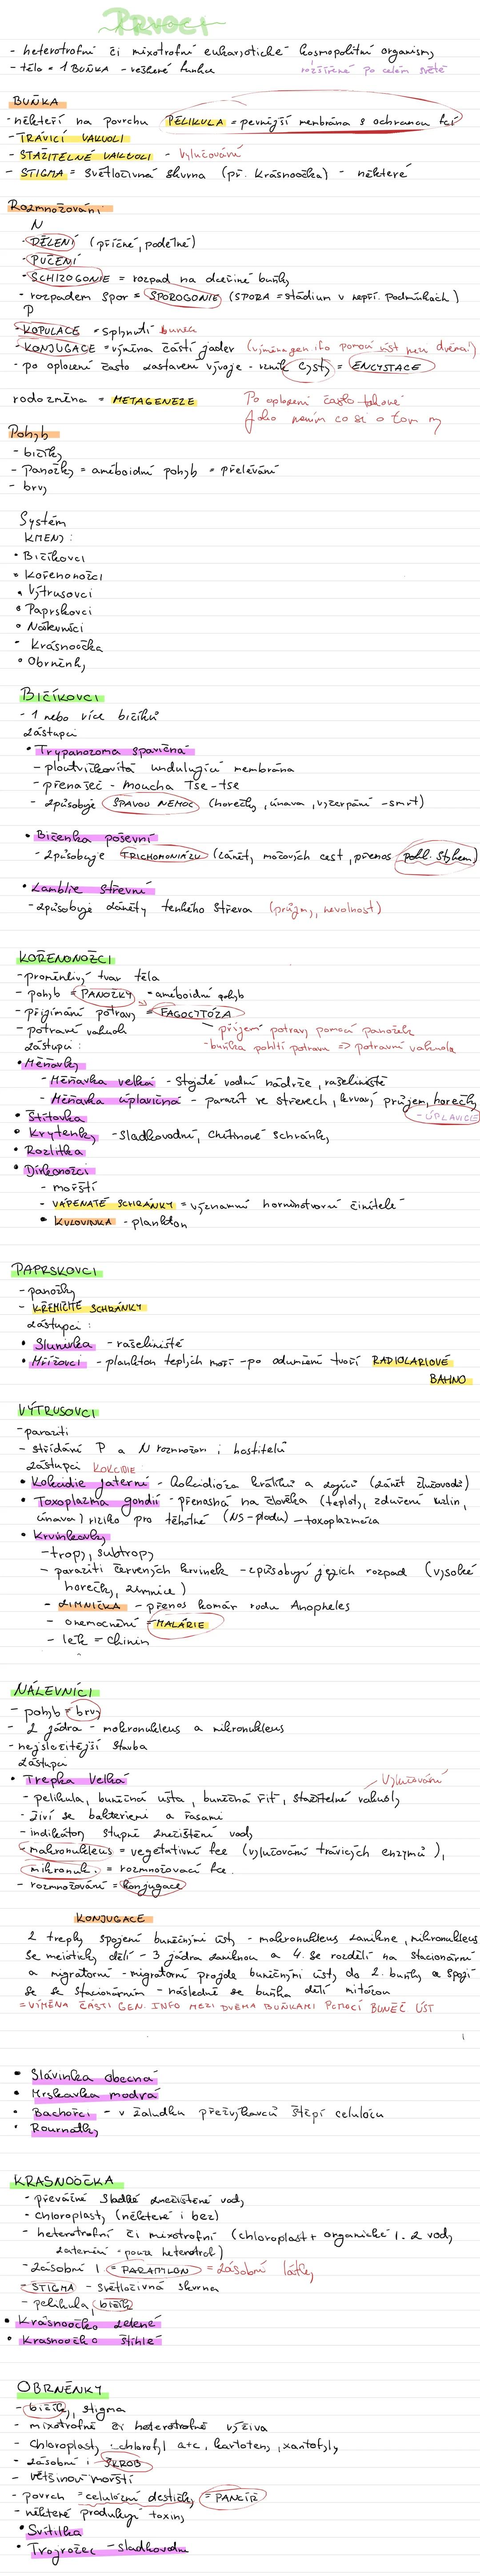 PRVOCI
- heterotrofní či mixotrofní eukaryotické kosmopolitní organismy
- tělo = 1 BUŇKA - veškeré funkce rozšířené po celém světě
BUŇKA
- někteří na povrchu PELIKULA = pevnější membrána s ochrannou fcí
- TRÁVICÍ VAKUOLI
- STAŽITELNÉ VAKUOLI - vylučování
- STIGMA = světločivná skvrna (př. krásnoočka) - některé
Rozmnožování
N
- DĚLENÍ (příčné, podélné)
- PUČENÍ
- SCHIZOGONIE = rozpad na dceřiné buňky
- rozpadem spor = SPOROGONIE (SPORA = stádium v nepří. podmínkách)
P
- KOPULACE = splynutí buněk
- KONJUGACE = výměna částí jader (výměna gen. ifo pomocí úst mezi dvěma!)
- po oplození často zastavení vývoje - vznik cysty = ENCYSTACE
rodozměna = METAGENEZE Po oplození často takové
Jako nevím co si o tom m
Pohyb
- bičíky
- Panožky = améboidní pohyb = přelévání
- brvy
Systém
KMENY:
• Bičíkovci
• Kořenonožci
• Výtrusovci
• Paprskovci
• Nálevníci
• Krásnoočka
• Obrněnky
BIČÍKOVCI
- 1 nebo více bičíků
zástupci
• Trypanozoma spavičná
- ploutvičkovitá undulující membrána
- přenašeč - moucha Tse-tse
- způsobuje SPAVOU NEMOC (horečky, únava, vyčerpání - smrt)
• Bičenka poševní
- způsobuje TRICHOMONIÁZU (zánět, močových cest, přenos pohl. stykem)
• Lamblie střevní
- způsobuje záněty tenkého střeva (průjmy, nevolnost)
KOŘENONOŽCI
- proměnlivý tvar těla
- pohyb = PANOŽKY - améboidní pohyb
- přijímání potravy = FAGOCYTÓZA
- potravní vakuola - příjem potravy pomocí panožek
zástupci: - buňka pohltí potravu => potravní vakuola
• Měňavky
- Měňavka velká - stojaté vodní nádrže, rašeliniště
- Měňavka úplavičná - parazit ve střevech, krvavý průjem, horečky
- ÚPLAVICE
• Štítovka
• Krytenky - sladkovodní, chitinové schránky
• Rozlitka
• Dírkonošci
- mořští
- VÁPENATÉ SCHRÁNKY = významní horninotvorní činitelé
• KULOVINKA - plankton
PAPRSKOVCI
- panožky
- KŘEMIČITÉ SCHRÁNKY
zástupci:
• Slunivka - rašeliniště
• Mřížovci - plankton teplých moří - po odumření tvoří RADIOLARIOVÉ
BAHNO
VÝTRUSOVCI
- paraziti
- střídání P a N rozmnožov. i hostitelů
zástupci KOKCIDIE
• Kokcidie jaterní - kokcidióza králíků a zajíců (zánět žlučovodů)
• Toxoplazma gondii - přenosná na člověka (teploty, zduření uzlin,
únava) riziko pro těhotné (NS-plodu) - toxoplazmóza
• Krvinkovky
- tropy, subtropy
- paraziti červených krvinek - způsobují jejich rozpad (vysoké
horečky, zimnice)
- ZIMNIČKA - přenos komár rodu Anopheles
- onemocnění = MALÁRIE
- lék = chinin
NÁLEVNÍCI
- pohyb = brvy
- 2 jádra - makronukleus a mikronukleus
- nejsložitější stavba
zástupci
• Trepka velká - vylučování
- pelikula, buněčná ústa, buněčná řiť, stažitelné vakuoly
- živí se bakteriemi a řasami
- indikátory stupně znečištění vody
- makronukleus = vegetativní fce (vylučování trávicích enzymů),
mikronuk. = rozmnožovací fce.
- rozmnožování = konjugace
KONJUGACE
2 trepky spojení buněčnými ústy - makronukleus zanikne, mikronukleus
se meioticky dělí - 3 jádra zaniknou a 4. se rozdělí na stacionární
a migratorní - migratorní projde buněčnými ústy do 2. buňky a spojí
se se stacionárním - následně se buňka dělí mitózou
= VÝMĚNA ČÁSTI GEN. INFO MEZI DVĚMA BUŇKAMI POMOCÍ BUNĚČ ÚST
• Slávinka obecná
• Mrskavka modrá
• Bachořci - v žaludku přežvýkavců štěpí celulózu
• Rournatky
KRÁSNOOČKA
- převážně sladké znečištěné vody
- chloroplasty (některé i bez)
- heterotrofní či mixotrofní (chloroplast + organické l. z vody
zatemnění - pouze heterotrof)
- zásobní l = PARAMYLON = zásobní látky
- STIGMA - světločivná skvrna
- pelikula, bičík
• Krásnoočko zelené
• Krásnoočko štíhlé
OBRNĚNKY
- bičíky, stigma
- mixotrofně či heterotrofně výživa
- chloroplasty - chlorofyl a+c, karoteny, xantofyly
- zásobní l - ŠKROB
- většinou mořští
- povrch = celulózní destičky = PANCÍŘ
- některé produkují toxiny
• Svítilka
• Trojrožec - sladkovodní